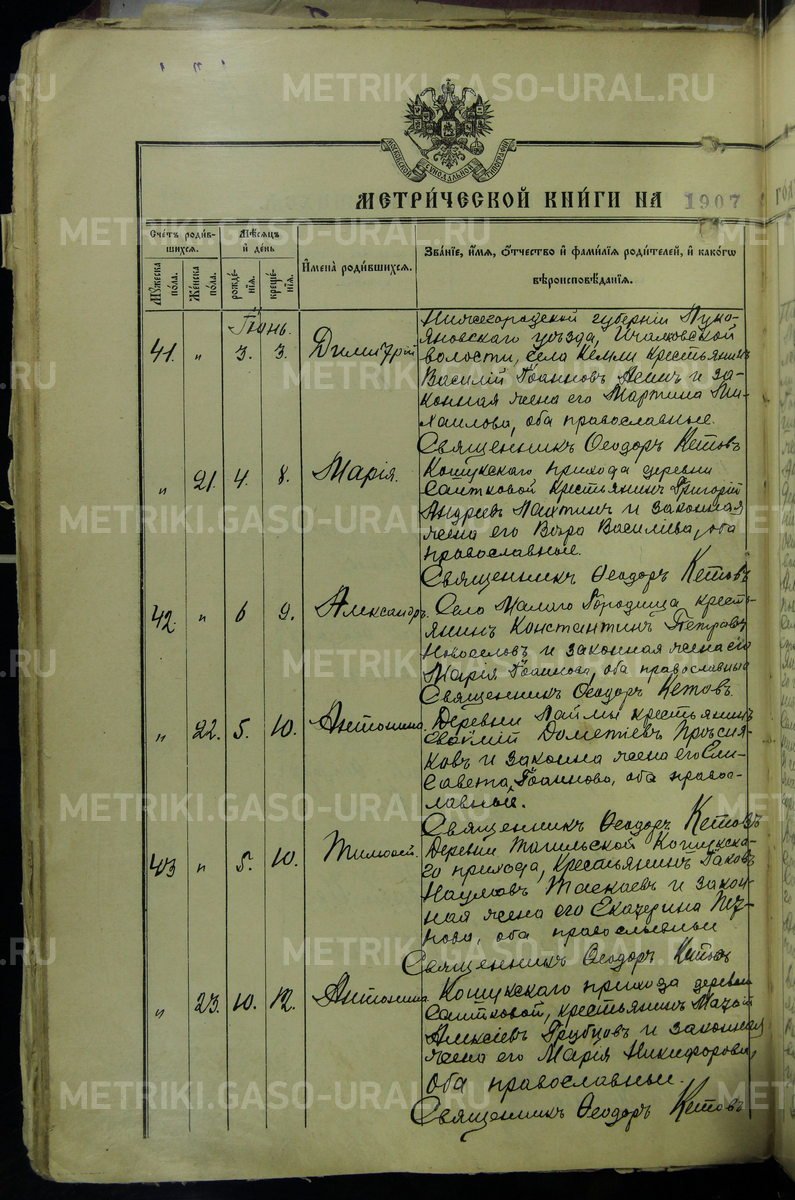 METRIKI.GASO-URAL.RU
МОСКОВСКОЙ СУНОДАЛЬНОЙ ТИПОГРАФІИ
МЕТРИ́ЧЕСКОЙ КНИ́ГИ НА 1907
Сче́тъ роди́в-
шихся.
Мꙋжеска
по́ла.
Же́нска
по́ла.
Мѣ́сяцъ
и҆ де́нь
рожде́-
нія.
креще́-
нія.
И҆мена̀ роди́вшихся.
Зва́ніе, и҆́мя, ѻ҆́тчество и҆ фами́лія роди́телей, и҆ како́гѡ
вѣроисповѣ́данія.
Іюнь.
41. „ 3. 3. Димитрій
Нижегородской губерніи Луко-
яновскаго уѣзда, Ичалковской
волости, села Кемли крестьянинъ
Василій Іоанновъ и за-
конная жена его Мартина Ми-
хаилова, оба православные.
Священникъ Ѳеодоръ Кетовъ
„ 21. 4. 8. Марія.
Кошукскаго прихода деревни
Саитковой крестьянинъ Григорій
Андреевъ Лаптинъ и законная
жена его Вѣра Василіева, оба
православные.
Священникъ Ѳеодоръ Кетовъ
42. „ 6 9. Александръ.
Село Малаго Городища кресть-
янинъ Константинъ Петровъ
Новоселовъ и законная жена его
Марія Іоаннова, оба православные
Священникъ Ѳеодоръ Кетовъ.
„ 22. 5. 10. Антонина.
Деревни Лаймы крестьянинъ
Дометіевъ Прѣсня-
ковъ и законна жена его Ели-
савета Іоаннова, оба право-
славные.
Священникъ Ѳеодоръ Кетовъ
43 „ 5. 10. Тимоѳей.
Деревни Тагильской Кошукска-
го прихода, крестьянинъ Іаковъ
Наумовъ Таскаевъ и закон-
ная жена его Екатерина Пет-
рова, оба православные
Священникъ Ѳеодоръ Кетовъ
„ 23. 10. 12. Антонина.
Кошукскаго прихода деревни
Саитковой, крестьянинъ
Алексіевъ Трубцовъ и законная
жена его Марія Никифорова,
оба православные.
Священникъ Ѳеодоръ Кетовъ